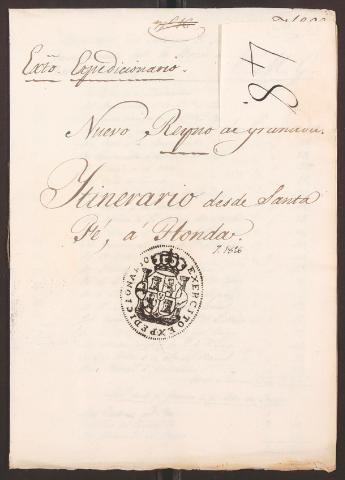 87
Exto. Expedicionario.
Nuevo Reyno de granada.
Itinerario desde Santa
Fé, á Honda.
7. 1816
EXERCITO EXPEDICIONARIO